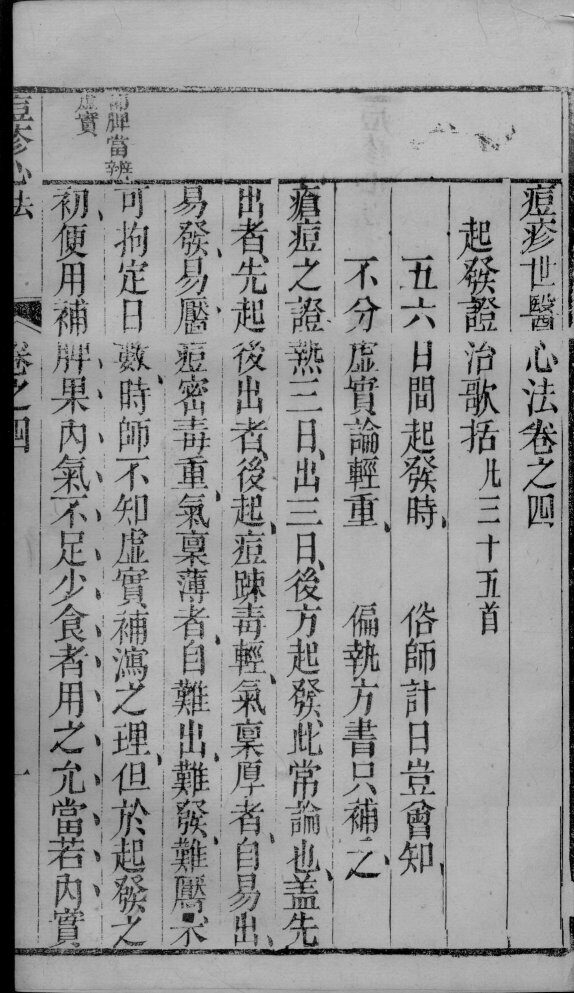 痘疹世醫心法卷之四
起發證治歌括凡三十五首
五六日間起發時俗師計日豈曾知
不分虛實論輕重偏執方書只補之
瘡痘之證熱三日出三日後方起發此常論也盖先
出者先起後出者後起痘踈毒輕氣稟厚者自易出
易發易靨痘密毒重氣稟薄者自難出難發難靨不
可拘定日數時師不知虛實補瀉之理但於起發之
初便用補脾果內氣不足少食者用之允當若內實
補脾當辨
虛實
痘疹心法
卷之四
一